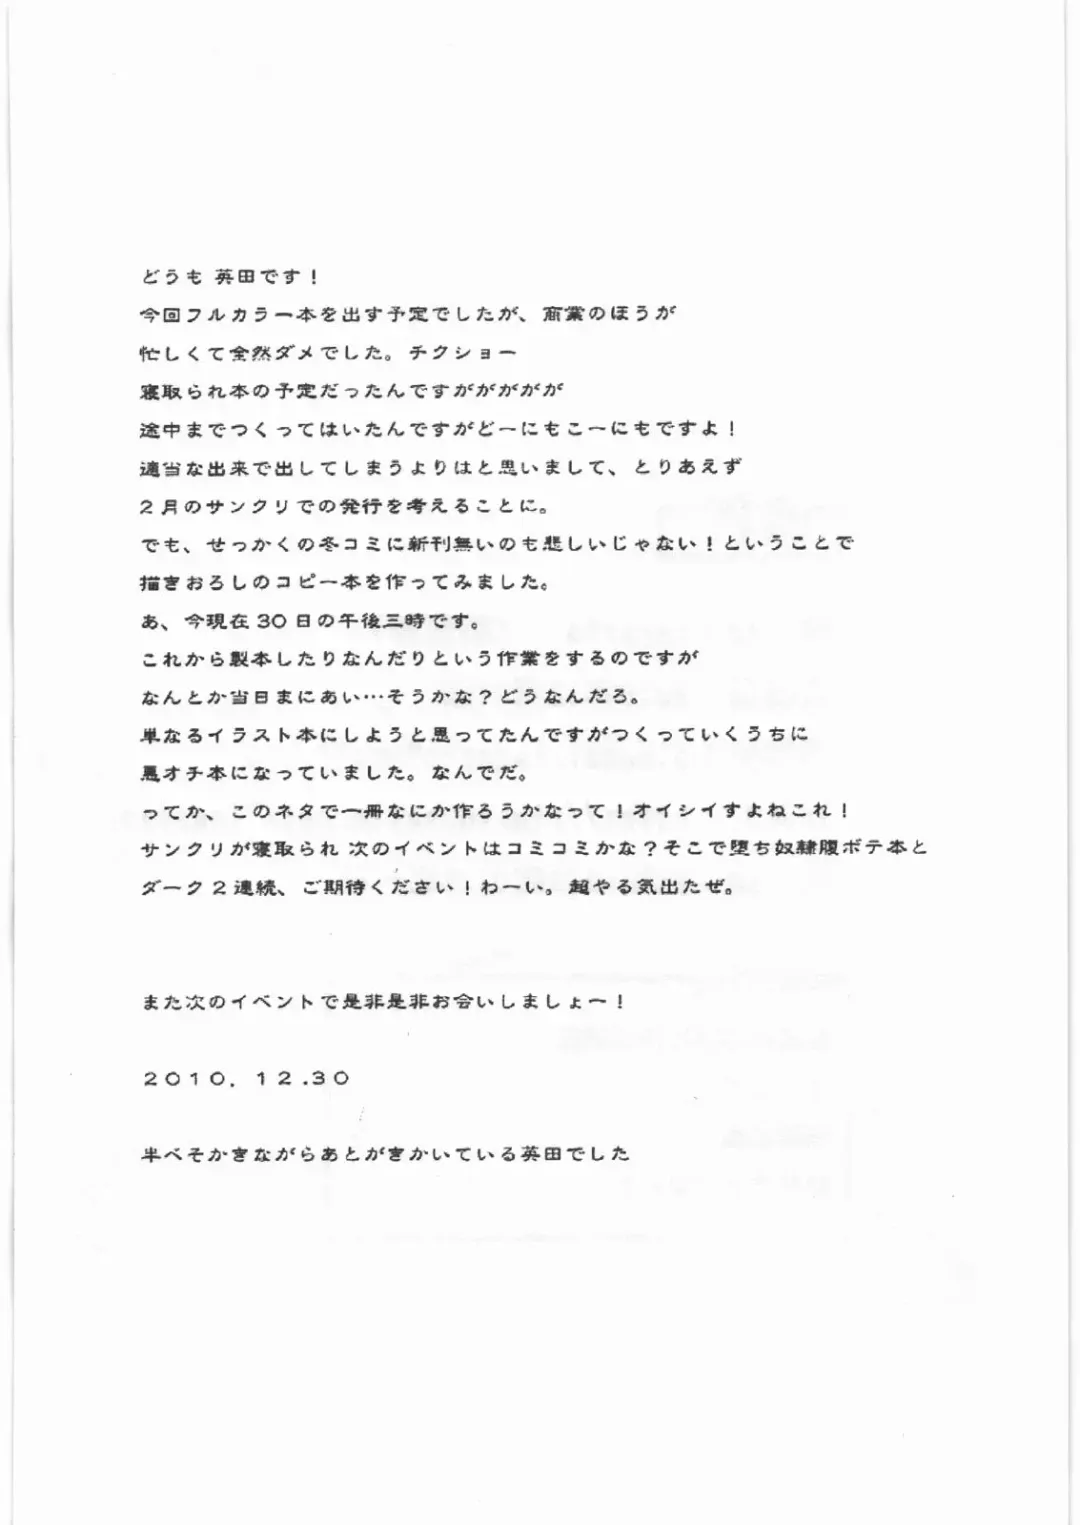 どうも 英田です！
今回フルカラー本を出す予定でしたが、商業のほうが
忙しくて全然ダメでした。チクショー
寝取られ本の予定だったんですがががががが
途中までつくってはいたんですがどーにもこーにもですよ！
適当な出来で出してしまうよりはと思いまして、とりあえず
２月のサンクリでの発行を考えることに。
でも、せっかくの冬コミに新刊無いのも悲しいじゃない！ということで
描きおろしのコピー本を作ってみました。
あ、今現在 30 日の午後三時です。
これから製本したりなんだりという作業をするのですが
なんとか当日まにあい…そうかな？どうなんだろ。
単なるイラスト本にしようと思ってたんですがつくっていくうちに
悪オチ本になっていました。なんでだ。
ってか、このネタで一冊なにか作ろうかなって！オイシイすよねこれ！
サンクリが寝取られ 次のイベントはコミコミかな？そこで堕ち奴隷腹ボテ本と
ダーク２連続、ご期待ください！わーい。超やる気出たぜ。
また次のイベントで是非是非お会いしましょー！
２０１０．１２.３０
半べそかきながらあとがきかいている英田でした